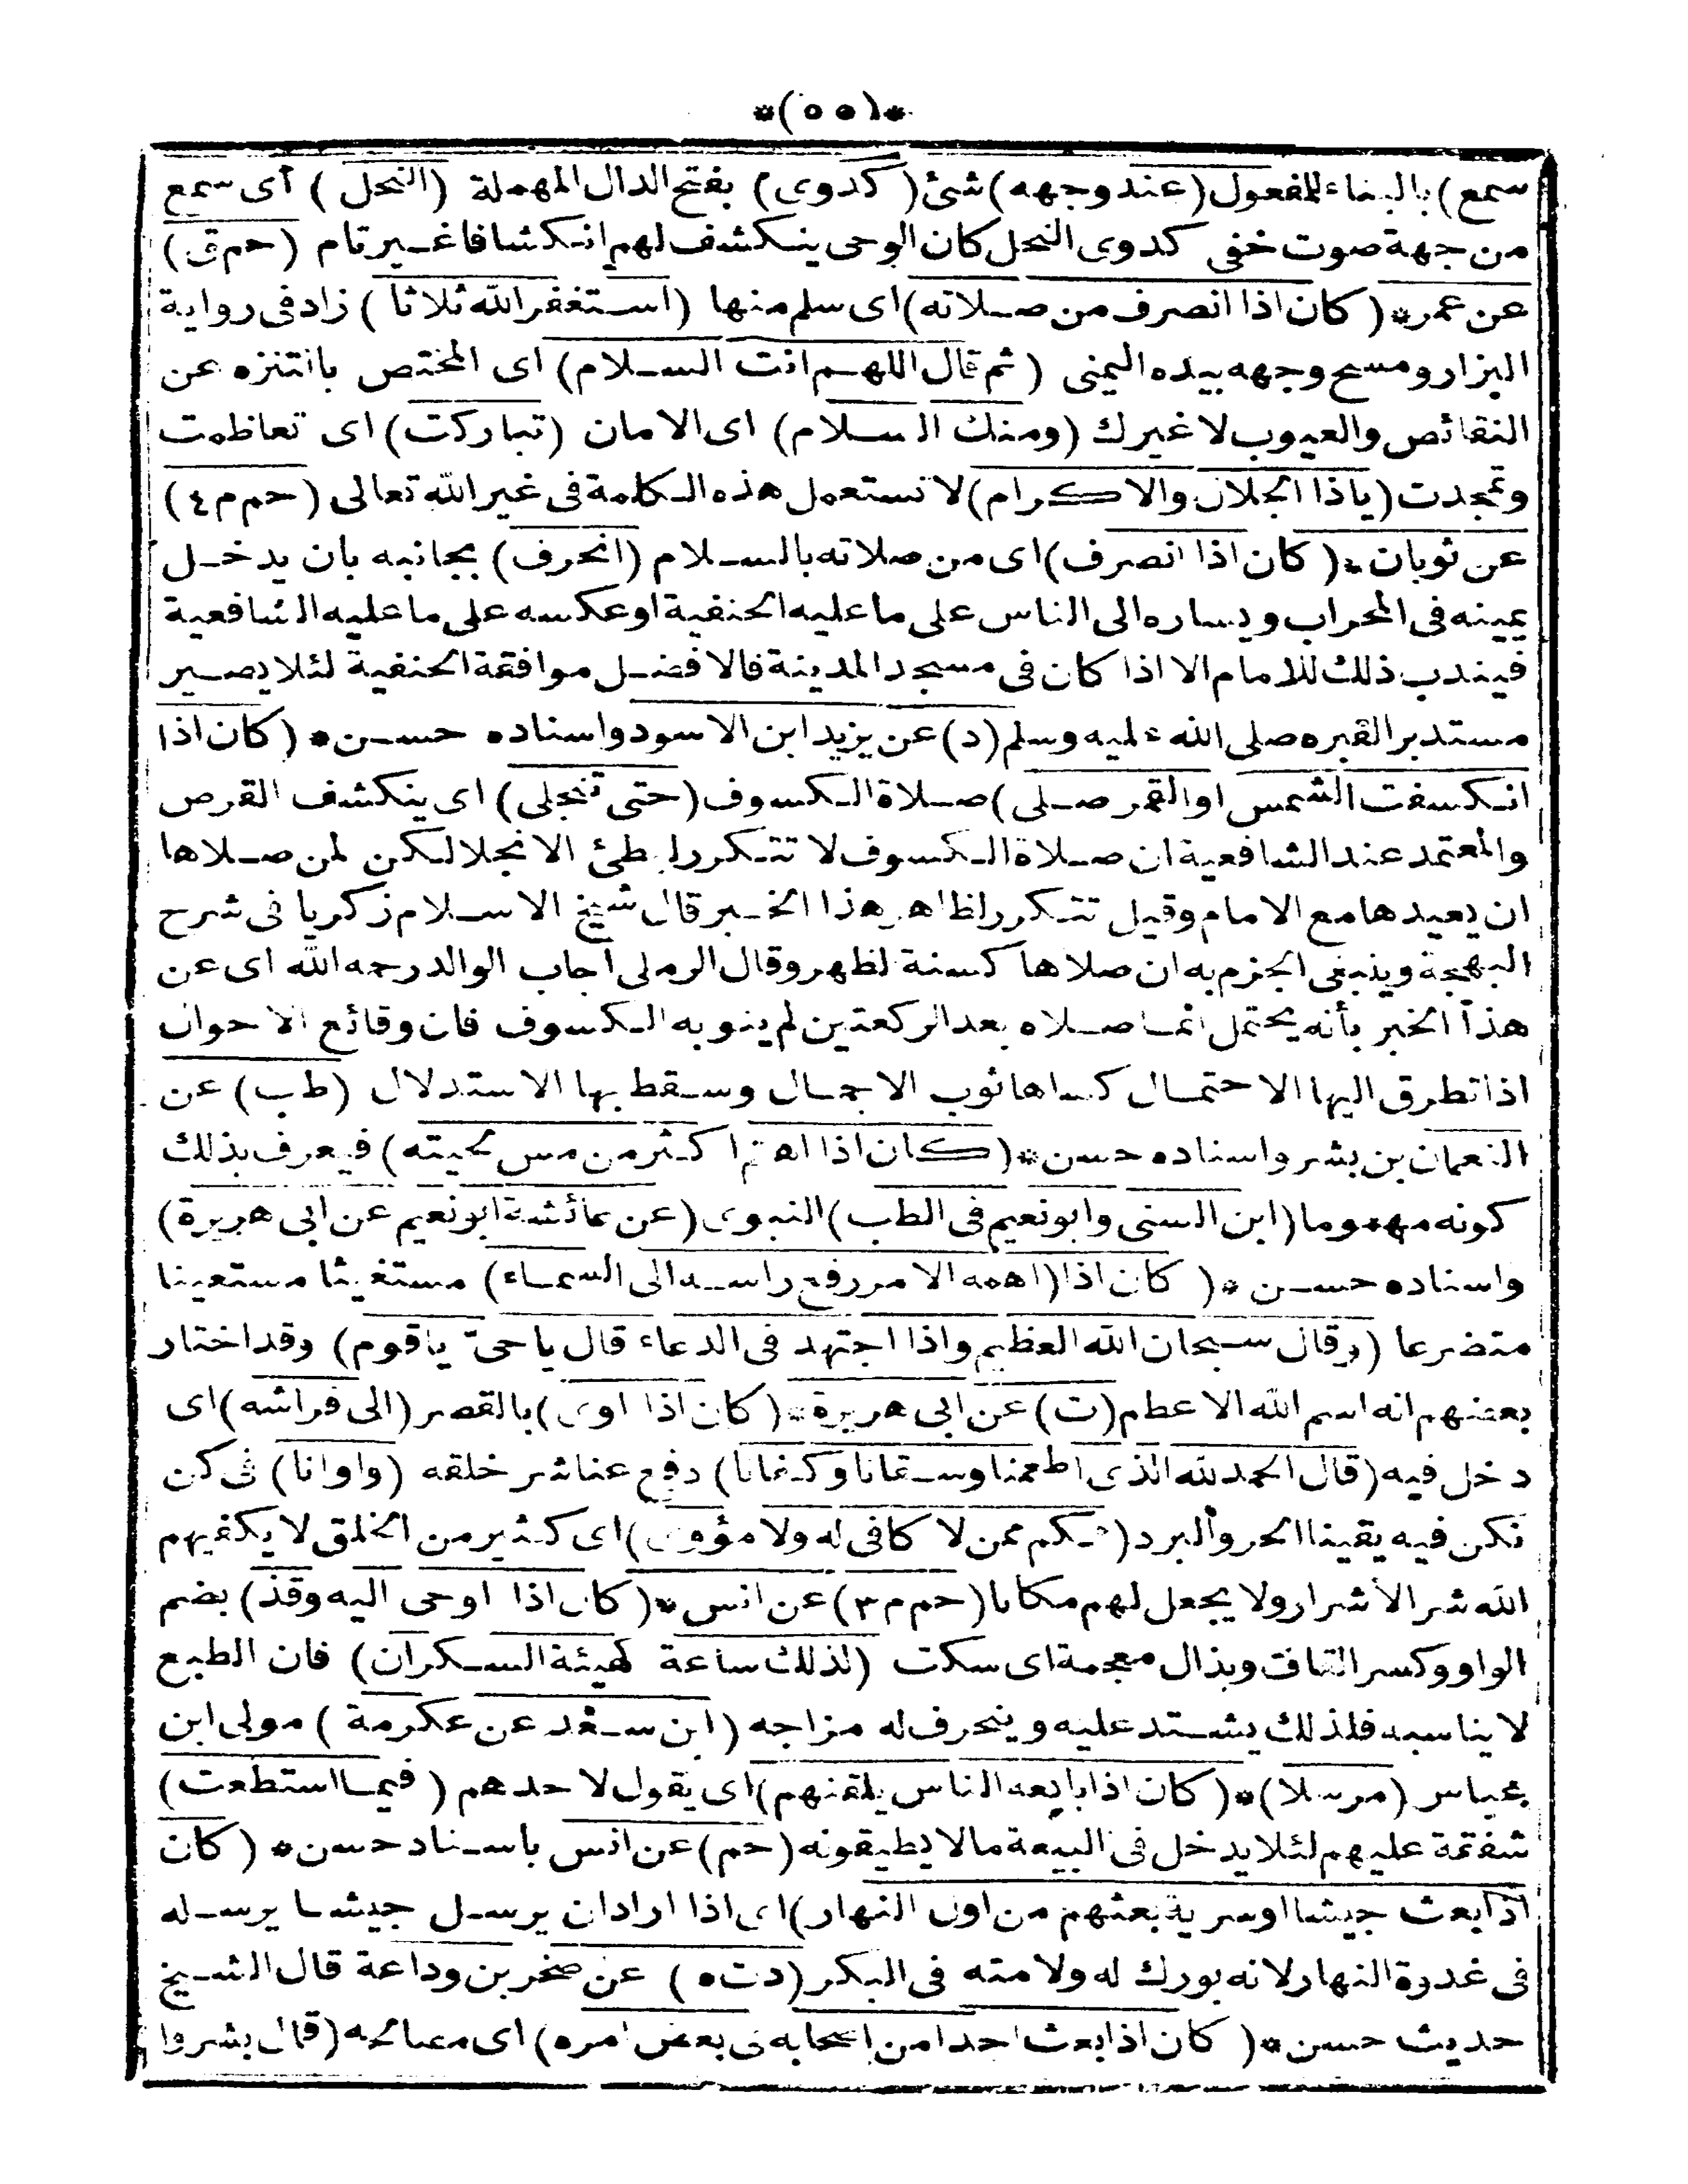 *(٥٥)*
سمع) بالبناء للمفعول (عند وجهه) شئ (كدوى) بفتح الدال المهملة (النحل) أى سمع
من جهة صوت خفى كدوى النحل كان الوحى ينكشف لهم انكشافا غير تام (حم ق)
عن عمر* (كان اذا انصرف من صلاته) اى سلم منها (استغفر الله ثلاثا) زاد فى رواية
البزار ومسح وجهه بيده اليمنى (ثم قال اللهم انت السلام) اى المختص باانتنزه عن
النقائص والعيوب لا غيرك (ومنك السلام) اى الامان (تباركت) اى تعاظمت
وتمجدت (يا ذا الجلال والاكرام) لا تستعمل هذه الكلمة فى غير الله تعالى (حم م ٤)
عن ثوبان* (كان اذا انصرف) اى من صلاته بالسلام (انحرف) بجانبه بان يدخل
يمينه فى المحراب ويساره الى الناس على ما عليه الحنفية او عكسه على ما عليه الشافعية
فيندب ذلك للامام الا اذا كان فى مسجد المدينة فالافضل موافقة الحنفية لئلا يصير
مستدبر القبره صلى الله عليه وسلم (د) عن يزيد ابن الاسود واسناده حسن* (كان اذا
انكسفت الشمس او القمر صلى) صلاة الكسوف (حتى تنجلى) اى ينكشف القرص
والمعتمد عند الشافعية ان صلاة الكسوف لا تتكرر لبطئ الانجلا لكن لمن صلاها
ان يعيدها مع الامام وقيل تتكرر لظاهر هذا الخبر قال شيخ الاسلام زكريا فى شرح
البهجة وينبغى الجزم به ان صلاها كسنة لظهر وقال الرملى اجاب الوالد رحمه الله اى عن
هذا الخبر بأنه يحتمل انما صلاه بعد الركعتين لم ينو به الكسوف فان وقائع الاحوال
اذا تطرق اليها الاحتمال كساها ثوب الاجمال وسقط بها الاستدلال (طب) عن
النعمان بن بشر واسناده حسن* (كان اذا اهتم اكثر من مس لحيته) فيعرف بذلك
كونه مهموما (ابن السنى وابو نعيم فى الطب) النبوى (عن عائشة ابو نعيم عن ابى هريرة)
واسناده حسن* (كان اذا (اهمه الامر رفع راسه الى السماء) مستغيثا مستعينا
متضرعا (وقال سبحان الله العظيم واذا اجتهد فى الدعاء قال يا حىّ يا قيوم) وقد اختار
بعضهم انه اسم الله الاعظم (ت) عن ابى هريرة* (كان اذا اوى) بالقصر (الى فراشه) اى
دخل فيه (قال الحمد لله الذى اطعمنا وسقانا وكفانا) دفع عنا شر خلقه (واوانا) فى كن
نكن فيه يقينا الحر والبرد (فكم ممن لا كافى له ولا مؤوى) اى كثير من الخلق لا يكفيهم
الله شر الأشرار ولا يجعل لهم مكانا (حم م ٣) عن انس* (كان اذا اوحى اليه وقذ) بضم
الواو وكسر القاف وبذال معجمة اى سكت (لذلك ساعة كهيئة السكران) فان الطبع
لا يناسبه فلذلك يشتد عليه وينحرف له مزاجه (ابن سعد عن عكرمة) مولى ابن
عباس (مرسلا)* (كان اذا بايعه الناس يلقنهم) اى يقول لاحدهم (فيما استطعت)
شفقة عليهم لئلا يدخل فى البيعة ما لا يطيقونه (حم) عن انس باسناد حسن* (كان
اذا بعث جيشا او سرية بعثهم من اول النهار) اى اذا اراد ان يرسل جيشا يرسله
فى غدوة النهار لانه بورك له ولامته فى البكر (د ت ه) عن صخر بن وداعة قال الشيخ
حديث حسن* (كان اذا بعث احدا من اصحابه فى بعض امره) اى مصالحه (قال بشروا